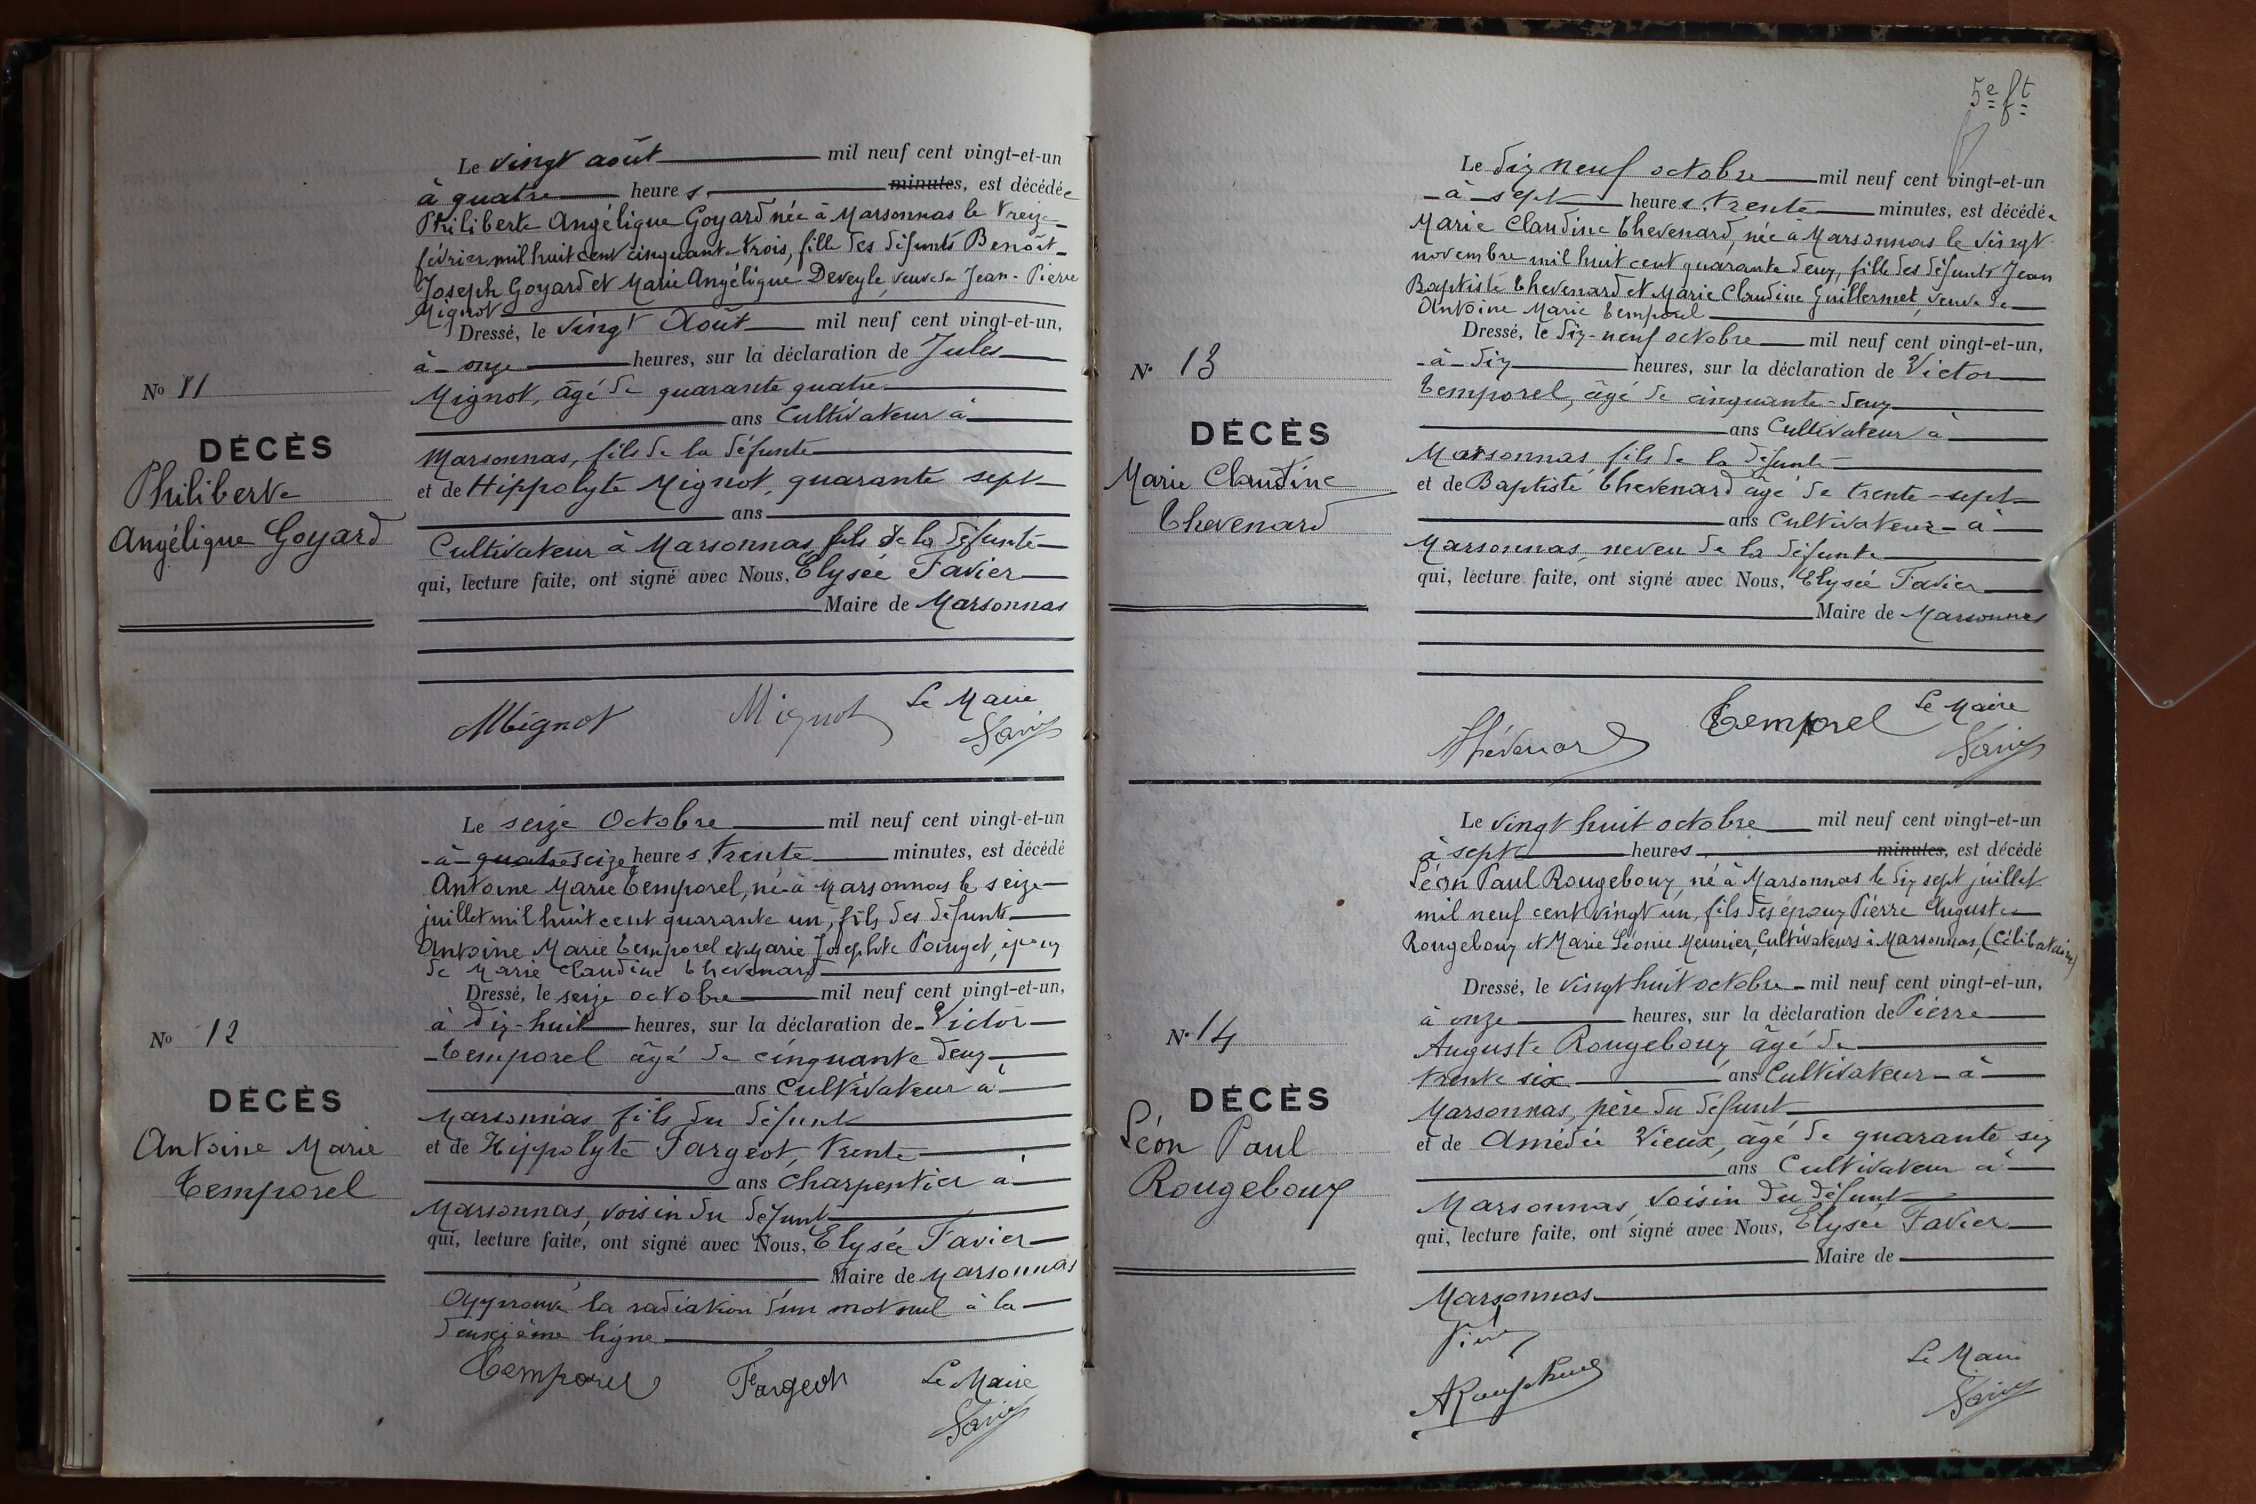 Le vingt août mil neuf cent vingt-et-un
à quatre heures minutes, est décédée
Philiberte Angélique Goyard née à Marsonnas le treize
février mil huit cent cinquante trois, fille des défunts Benoît
Joseph Goyard et Marie Angélique Deveyle, veuve de Jean-Pierre
Mignot
Dressé, le vingt Août mil neuf cent vingt-et-un,
à onze heures, sur la déclaration de Jules
No 11
Mignot, âgé de quarante quatre
ans Cultivateur à
DÉCÈS
Marsonnas, fils de la défunte
Philiberte
et de Hippolyte Mignot, quarante sept
ans
Angélique Goyard
Cultivateur à Marsonnas, fils de la défunte
qui, lecture faite, ont signé avec Nous, Elysée Favier
Maire de Marsonnas
Mignot Mignot Le Maire
Favier
Le seize Octobre mil neuf cent vingt-et-un
à quatre seize heures trente minutes, est décédé
Antoine Marie Temporel, né à Marsonnas le seize
juillet mil huit cent quarante un, fils des défunts
Antoine Marie Temporel et Marie Josephte Pouget, époux
de Marie Claudine Thevenard
Dressé, le seize octobre mil neuf cent vingt-et-un,
à dix-huit heures, sur la déclaration de Victor
No 12
Temporel âgé de cinquante deux
ans Cultivateur à
DÉCÈS
Marsonnas fils du défunt
Antoine Marie
et de Hippolyte Fargeot, trente
ans charpentier à
Temporel
Marsonnas, voisin du défunt
qui, lecture faite, ont signé avec Nous, Elysée Favier
Maire de Marsonnas
Approuvé la radiation d'un mot nul à la
deuxième ligne
Temporel Fargeot Le Maire
Favier
5e ft
Le dix neuf octobre mil neuf cent vingt-et-un
à sept heures trente minutes, est décédée
Marie Claudine Thevenard, née à Marsonnas le vingt
novembre mil huit cent quarante deux, fille des défunts Jean
Baptiste Thevenard et Marie Claudine Guillermet, veuve de
Antoine Marie Temporel
Dressé, le dix-neuf octobre mil neuf cent vingt-et-un,
No 13
à dix heures, sur la déclaration de Victor
Temporel, âgé de cinquante-deux
ans Cultivateur à
DÉCÈS
Marsonnas fils de la défunte
Marie Claudine
et de Baptiste Thevenard âgé de trente-sept
ans Cultivateur à
Thevenard
Marsonnas, neveu de la défunte
qui, lecture faite, ont signé avec Nous, Elysée Favier
Maire de Marsonnas
Thévenard Temporel Le Maire
Favier
Le vingt huit octobre mil neuf cent vingt-et-un
à sept heures minutes, est décédé
Léon Paul Rougeboux, né à Marsonnas le dix sept juillet
mil neuf cent vingt un, fils des époux Pierre Auguste
Rougeboux et Marie Léonie Meunier, Cultivateurs à Marsonnas, (Célibataire)
Dressé, le vingt huit octobre mil neuf cent vingt-et-un,
à onze heures, sur la déclaration de Pierre
No 14
Auguste Rougeboux âgé de
trente six ans Cultivateur à
DÉCÈS
Marsonnas, père du défunt
Léon Paul
et de Amédée Vieux, âgé de quarante six
ans Cultivateur à
Rougeboux
Marsonnas, voisin du défunt
qui, lecture faite, ont signé avec Nous, Elysée Favier
Maire de
Marsonnas
Le Maire
Favier